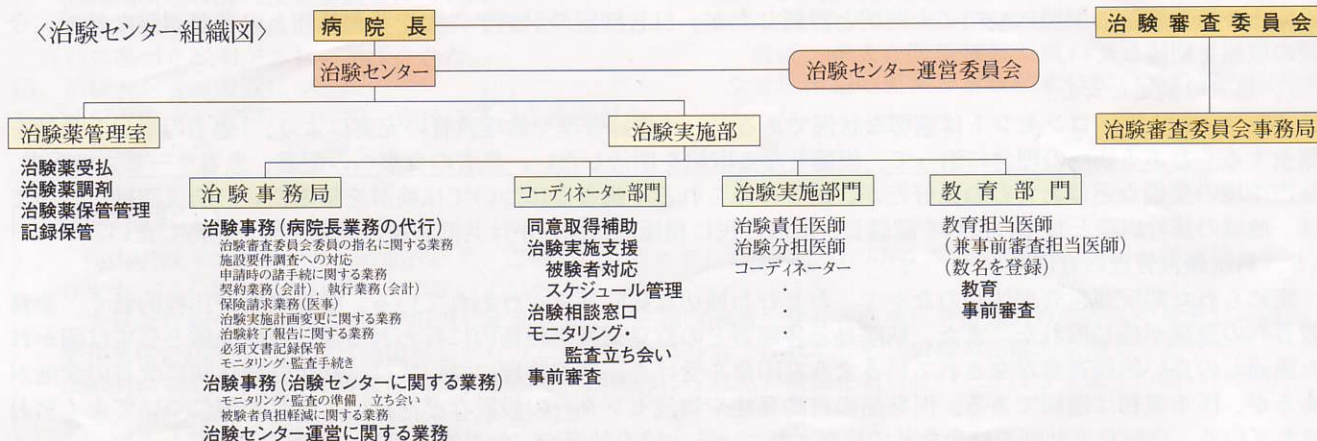 〈治験センター組織図〉
病院長
治験審査委員会
治験センター
治験センター運営委員会
治験薬管理室
治験実施部
治験審査委員会事務局
治験薬受払
治験薬調剤
治験薬保管管理
記録保管
治験事務局
治験事務(病院長業務の代行)
治験審査委員会委員の指名に関する業務
施設要件調査への対応
申請時の諸手続に関する業務
契約業務(会計),執行業務(会計)
保険請求業務(医事)
治験実施計画変更に関する業務
治験終了報告に関する業務
必須文書記録保管
モニタリング・監査手続き
治験事務(治験センターに関する業務)
モニタリング・監査の準備,立ち会い
被験者負担軽減に関する業務
治験センター運営に関する業務
コーディネーター部門
同意取得補助
治験実施支援
被験者対応
スケジュール管理
治験相談窓口
モニタリング・
監査立ち会い
事前審査
治験実施部門
治験責任医師
治験分担医師
コーディネーター
・
・
・
教育部門
教育担当医師
(兼事前審査担当医師)
(数名を登録)
教育
事前審査